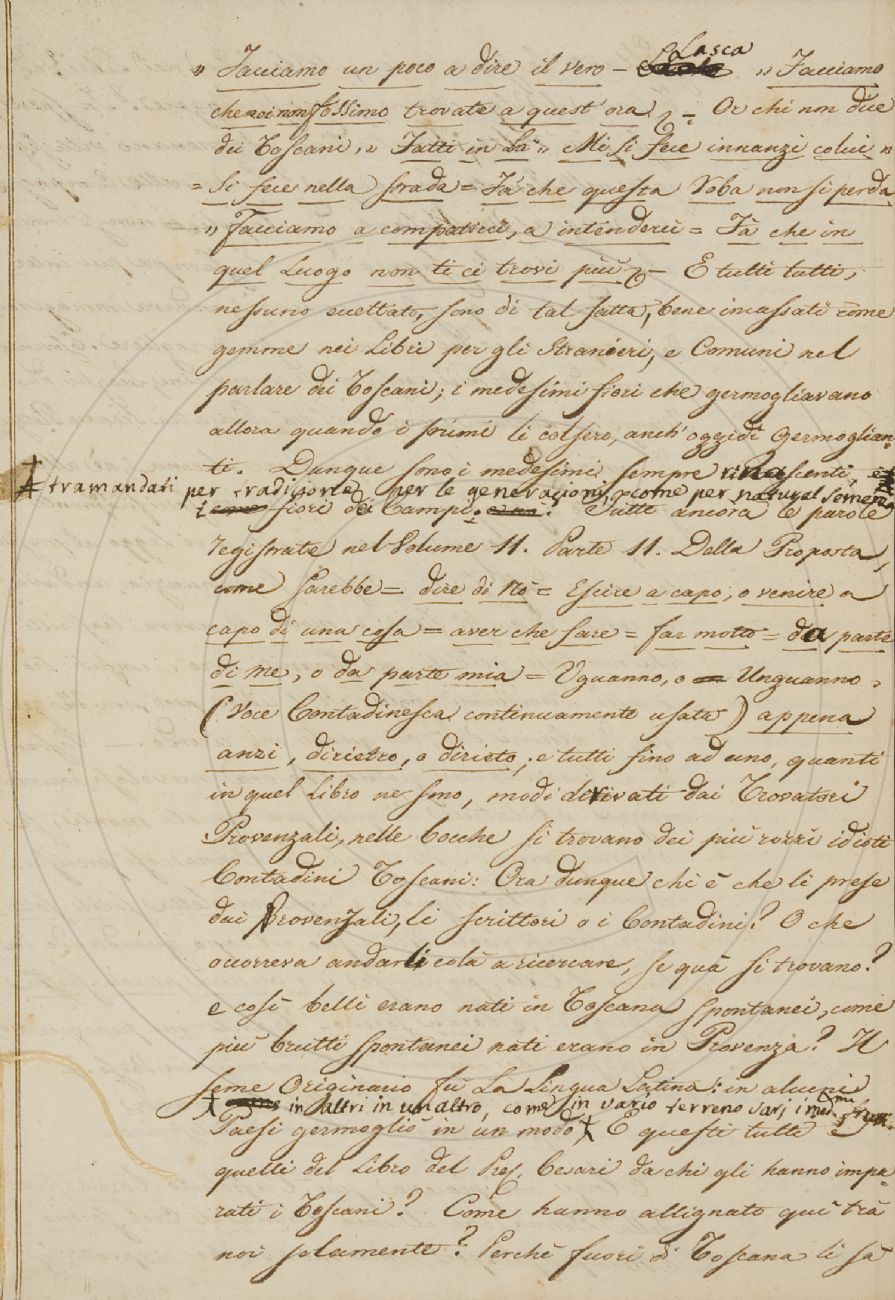 » Facciamo un poco a dire il vero – Lasca » Facciamo
che noi non fossimo trovate a quest' ora, – Or chi non dice
dei Toscani, » Fatti in là » Mi si fece innanzi colui »
= Si fece nella strada = Fà che questa Roba non si perda
» Facciamo a compatirci, a intenderci = Fà che in
quel Luogo non ti ci trovi più – E tutti tutti,
nessuno eccettato, sono di tal fatta, bene incassati come
gemme nei Libri per gli Stranieri, e Comuni nel
parlare dei Toscani; i medesimi fiori che germogliavano
allora quando i primi li colsero, anch' oggidì germoglian-
ti. Dunque sono i medesimi sempre rinascenti, e
‡ tramandati per tradizione per le generazioni, come per natural semenza
i fiori dei Campi. Tutte ancora le parole
registrate nel Volume II. Parte II. Della Proposta,
come sarebbe = dire di Nò = Escire a capo, o venire a
capo di una cosa = aver che fare = far motto = da parte
di me, o da parte mia = Uguanno, o Unguanno,
(Voce Contadinesca continuamente usata) appena
anzi, dirietro, o dirieto, e tutti fino ad uno, quanti
in quel Libro ne sono, modi derivati dai Trovatori
Provenzali, nelle bocche si trovano dei più rozzi idioti
Contadini Toscani: Ora dunque chi è che li prese
dai Provenzali, li scrittori o i Contadini? O che
occorreva andarli colà a ricercare, se quà si trovano?
e così belli erano nati in Toscana spontanei, come
più brutti spontanei nati erano in Provenza? Il
seme Originario fù La Lingua Latina: in alcuni
‡ in altri in un altro, come in vario terreno varj i
Paesi germogliò in un modo ‡ E questi tutti e
quelli del Libro del Pres. Cesari da chi gli hanno impa-
rati i Toscani? Come hanno allignato quì trà
noi solamente? Perchè fuori di Toscana li sà